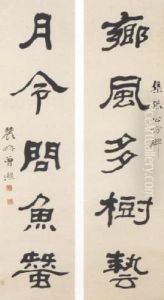 集張公方碑
鄉風多樹藝
月令問魚
農髯曾熙